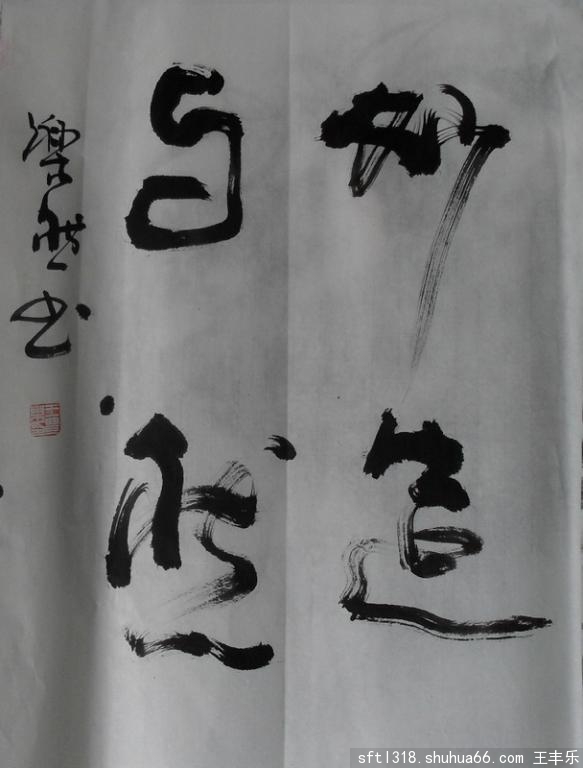 妙造
自然
樂然书
sftl318.shuhua66.com 王丰乐